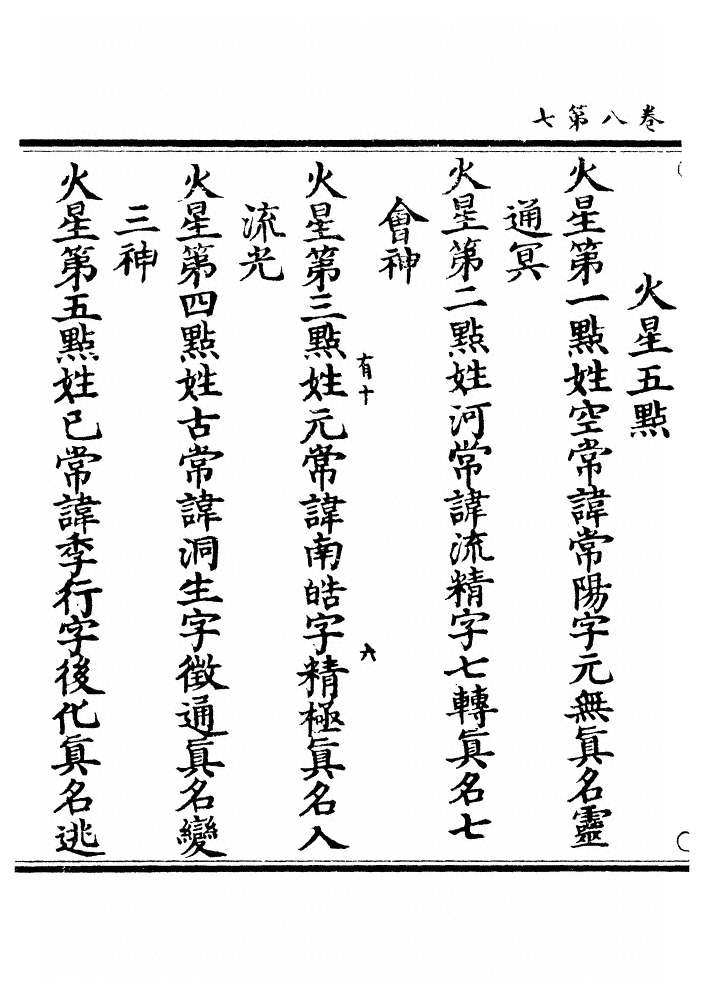 卷八第七
火星五點
火星第一點姓空常諱常陽字元無眞名靈
通冥
火星第二點姓河常諱流精字七轉眞名七
會神
有十
六
火星第三點姓元常諱南皓字精極眞名入
流光
火星第四點姓古常諱洞生字徵通眞名變
三神
火星第五點姓已常諱季行字後化眞名逃